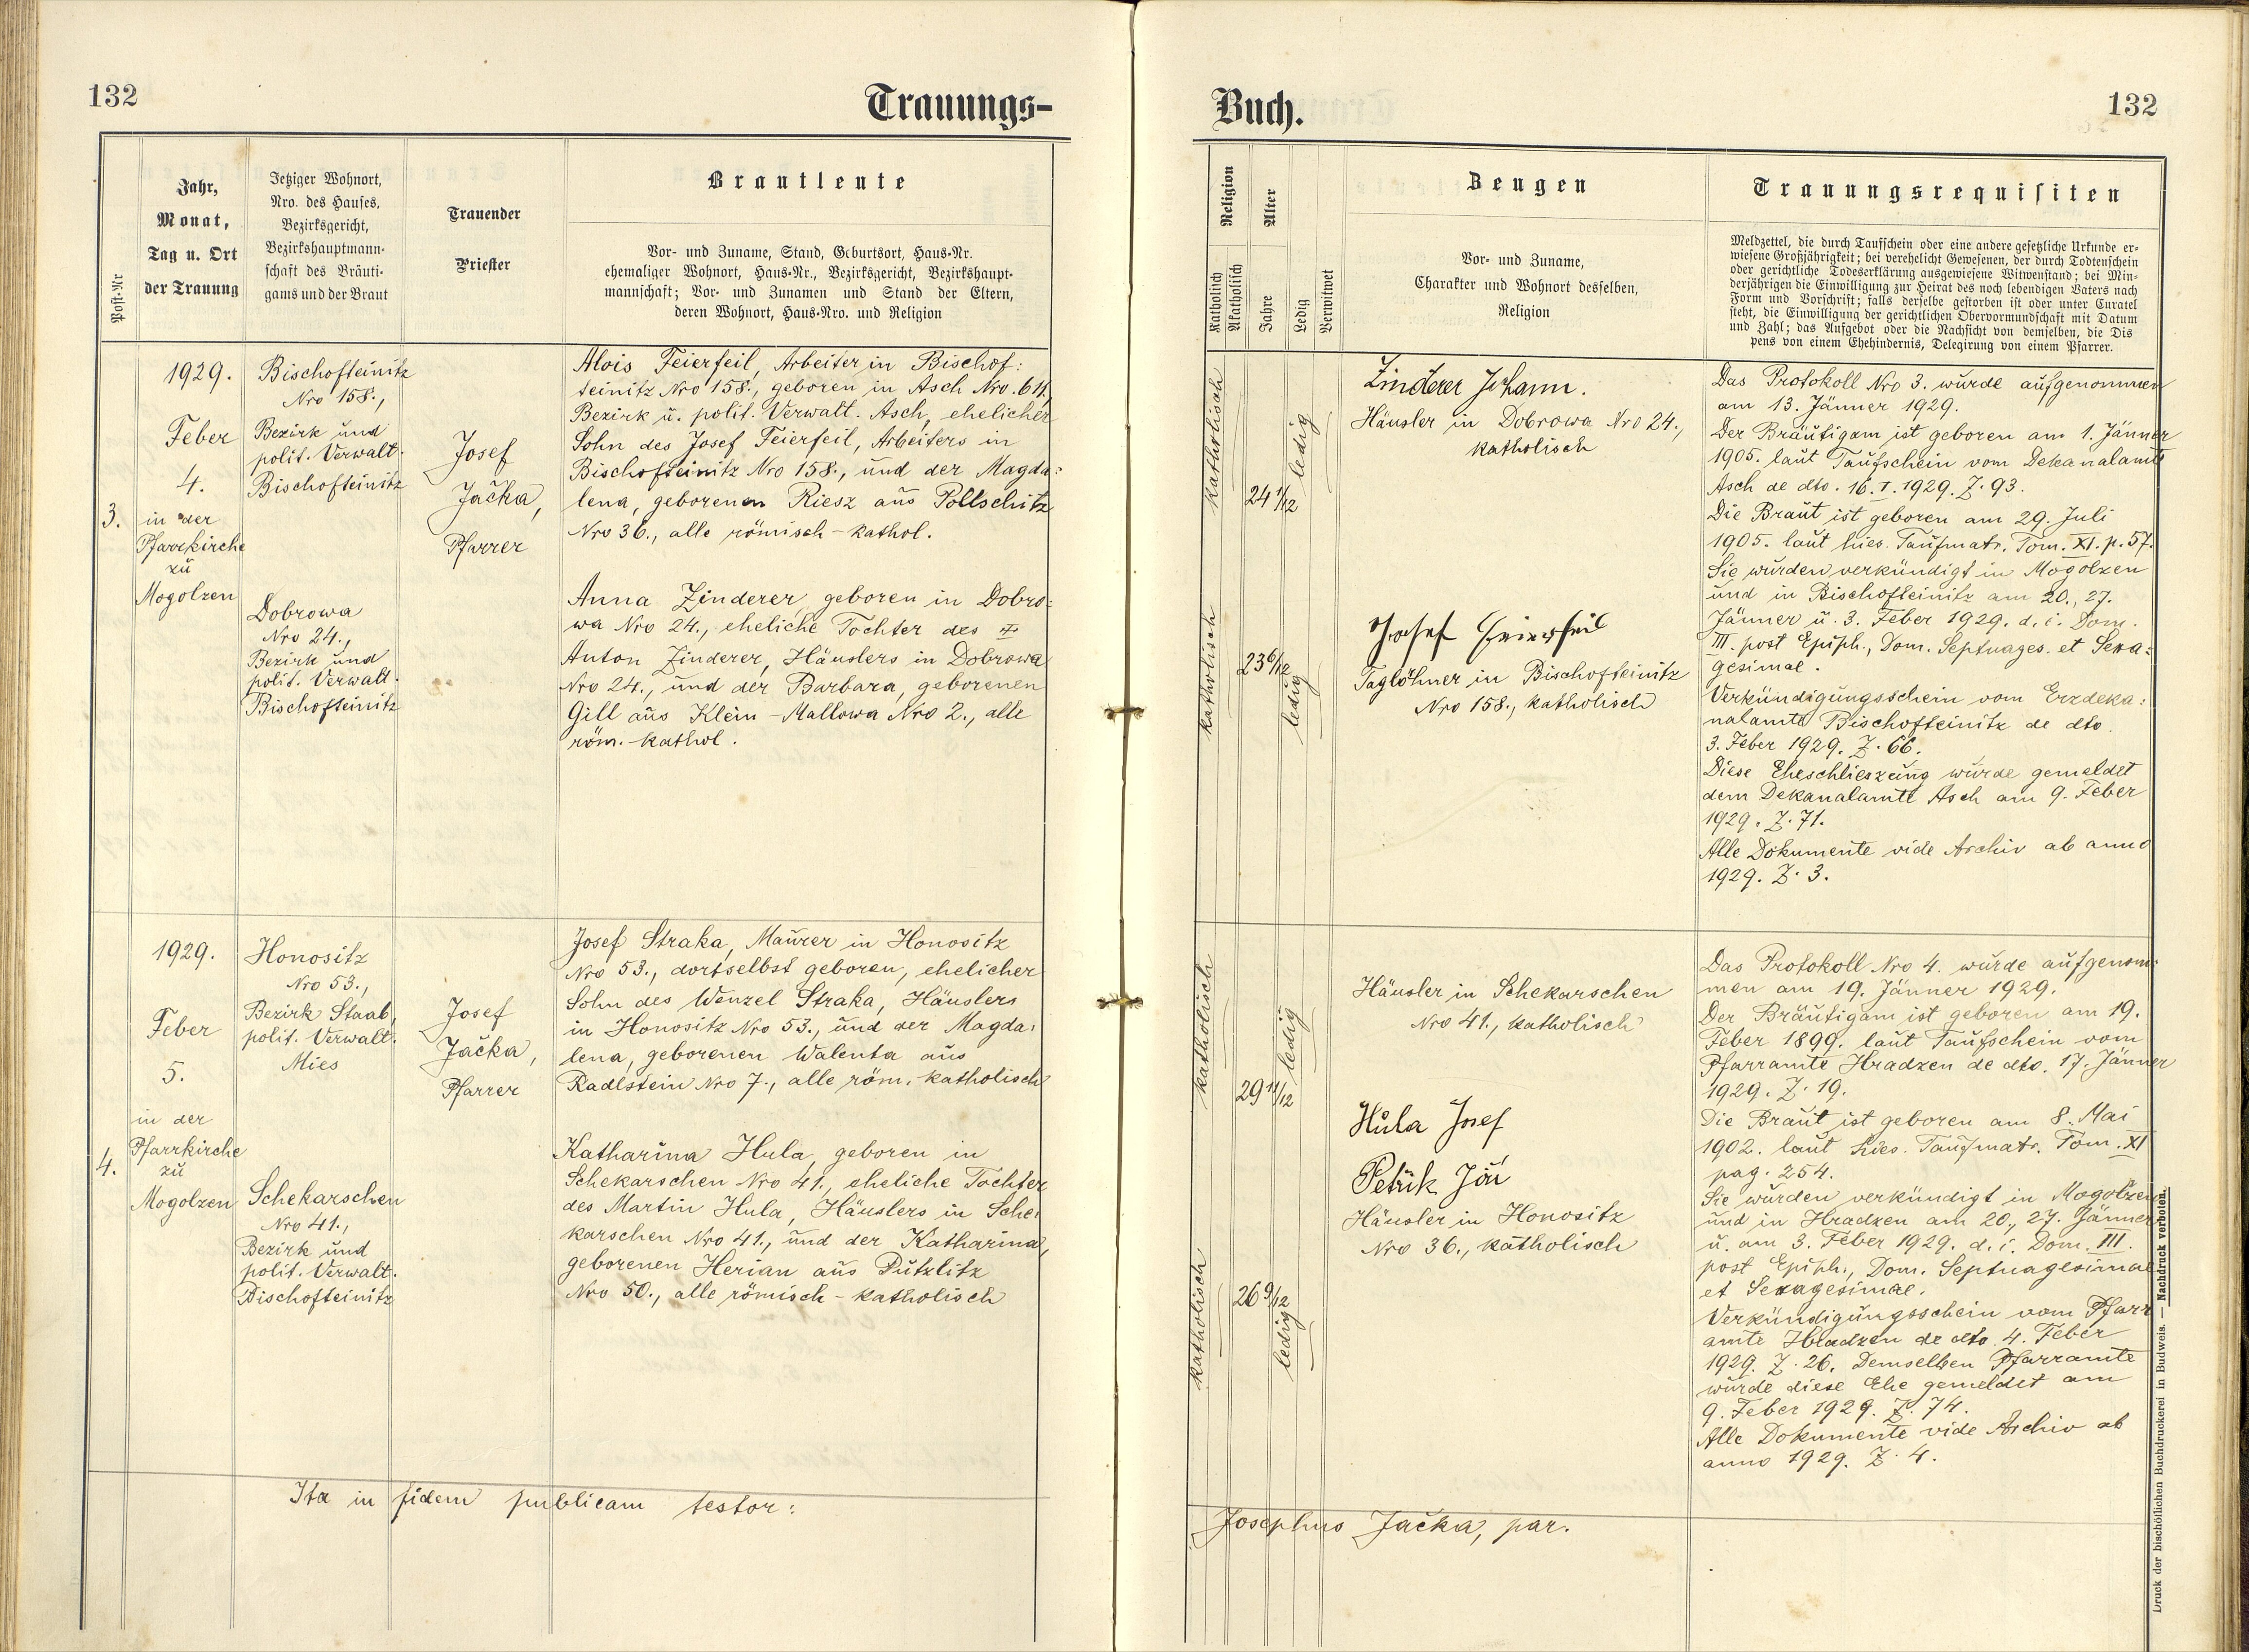 132
Trauungs-
Post-Nr
Jahr,
Monat,
Tag u. Ort
der Trauung
Jetziger Wohnort,
Nro. des Hauses,
Bezirksgericht,
Bezirkshauptmann-
schaft des Bräuti-
gams und der Braut
Trauender
Priester
Brautleute
Vor- und Zuname, Stand, Geburtsort, Haus-Nr.
ehemaliger Wohnort, Haus-Nr., Bezirksgericht, Bezirkshaupt-
mannschaft; Vor- und Zunamen und Stand der Eltern,
deren Wohnort, Haus-Nro. und Religion
3.
1929.
Feber
4.
in der
Pfarrkirche
zu
Mogolzen
Bischofteinitz
Nro 158.,
Bezirk und
polit. Verwalt.
Bischofteinitz
Dobrowa
Nro 24.,
Bezirk und
polit. Verwalt.
Bischofteinitz
Josef
Jačka,
Pfarrer
Alois Feierfeil, Arbeiter in Bischof:
teinitz Nro 158., geboren in Asch Nro. 611,
Bezirk u. polit. Verwalt. Asch, ehelicher
Sohn des Josef Feierfeil, Arbeiters in
Bischofteinitz Nro 158., und der Magda:
lena, geborenen Riesz aus Pollschitz
Nro 36., alle römisch-kathol.
Anna Zinderer, geboren in Dobro:
wa Nro 24., eheliche Tochter des ‡
Anton Zinderer, Häuslers in Dobrowa
Nro 24., und der Barbara, geborenen
Gill aus Klein-Mallowa Nro 2., alle
röm.-kathol.
4.
1929.
Feber
5.
in der
Pfarrkirche
zu
Mogolzen
Honositz
Nro 53.,
Bezirk Staab,
polit. Verwalt.
Mies
Schekarschen
Nro 41.,
Bezirk und
polit. Verwalt.
Bischofteinitz
Josef
Jačka,
Pfarrer
Josef Straka, Maurer in Honositz
Nro 53., dortselbst geboren, ehelicher
Sohn des Wenzel Straka, Häuslers
in Honositz Nro 53., und der Magda:
lena, geborenen Walenta aus
Radlstein Nro 7., alle röm. katholisch
Katharina Hula, geboren in
Schekarschen Nro 41., eheliche Tochter
des Martin Hula, Häuslers in Sche:
karschen Nro 41., und der Katharina,
geborenen Herian aus Putzlitz
Nro 50., alle römisch-katholisch
Ita in fidem publicam testor:
Buch.
132
Religion
Katholisch
Akatholisch
Alter
Jahre
Ledig
Verwitwet
Zeugen
Vor- und Zuname,
Charakter und Wohnort desselben,
Religion
Trauungsrequisiten
Meldzettel, die durch Taufschein oder eine andere gesetzliche Urkunde er-
wiesene Großjährigkeit; bei verehelicht Gewesenen, der durch Todtenschein
oder gerichtliche Todeserklärung ausgewiesene Witwenstand; bei Min-
derjährigen die Einwilligung zur Heirat des noch lebendigen Vaters nach
Form und Vorschrift; falls derselbe gestorben ist oder unter Curatel
steht, die Einwilligung der gerichtlichen Obervormundschaft mit Datum
und Zahl; das Aufgebot oder die Nachsicht von demselben, die Dis
pens von einem Ehehindernis, Delegirung von einem Pfarrer.
katholisch
24 1/12
ledig
katholisch
23 6/12
ledig
Zinderer Johann.
Häusler in Dobrowa Nro 24.,
katholisch
Josef Feierfeil
Taglöhner in Bischofteinitz
Nro 158., katholisch
Das Protokoll Nro 3. wurde aufgenommen
am 13. Jänner 1929.
Der Bräutigam ist geboren am 1. Jänner
1905. laut Taufschein vom Dekanalamte
Asch de dto. 16.I.1929. Z. 93.
Die Braut ist geboren am 29. Juli
1905. laut hies. Taufmatr. Tom. XI. p. 57.
Sie wurden verkündigt in Mogolzen
und in Bischofteinitz am 20., 27.
Jänner u. 3. Feber 1929. d. i. Dom.
III. post Epiph., Dom. Septuages. et Sexa:
gesimae.
Verkündigungsschein vom Erzdeka:
nalamte Bischofteinitz de dto.
3. Feber 1929. Z. 66.
Diese Eheschlieszung wurde gemeldet
dem Dekanalamte Asch am 9. Feber
1929. Z. 71.
Alle Dokumente vide Archiv ab anno
1929. Z. 3.
katholisch
29 11/12
ledig
katholisch
26 9/12
ledig
Häusler in Schekarschen
Nro 41., katholisch
Hůla Josef
Petrik
Häusler in Honositz
Nro 36., katholisch
Das Protokoll Nro 4. wurde aufgenom:
men am 19. Jänner 1929.
Der Bräutigam ist geboren am 19.
Feber 1899. laut Taufschein vom
Pfarramte Hradzen de dto. 17. Jänner
1929. Z. 19.
Die Braut ist geboren am 8. Mai
1902. laut hies. Taufmatr. Tom. XI
pag. 254.
Sie wurden verkündigt in Mogolzen
und in Hradzen am 20., 27. Jänner
u. am 3. Feber 1929. d. i. Dom. III.
post Epiph., Dom. Septuagesimae
et Sexagesimae.
Verkündigungsschein vom Pfarr
amte Hradzen de dto 4. Feber
1929. Z. 26. Demselben Pfarramte
wurde diese Ehe gemeldet am
9. Feber 1929. Z. 74.
Alle Dokumente vide Archiv ab
anno 1929. Z. 4.
Josephus Jačka, par.
Druck der bischöflichen Buchdruckerei in Budweis. — Nachdruck verboten.